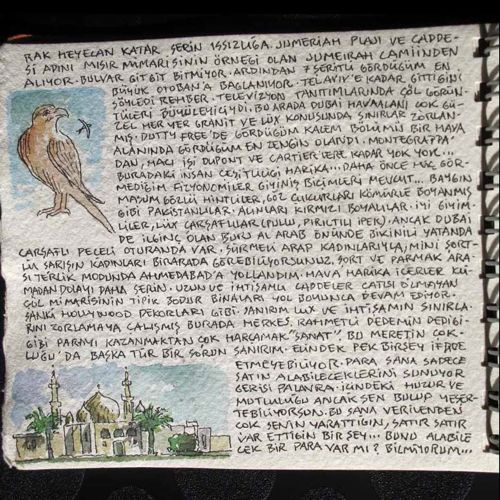 RAK HEYECAN KATAR SERİN ISSIZLIĞA. JUMERIAH PLAJI VE CADDE-
Sİ ADINI MISIR MİMARİSİNİN ÖRNEĞİ OLAN JUMEIRAH CAMİİNDEN
ALIYOR. BULVAR GİT GİT BİTMİYOR. ARDINDAN 7 ŞERİTLİ GÖRDÜĞÜM EN
BÜYÜK OTOBAN'A BAĞLANIYOR. TELAVİV'E KADAR GİTTİĞİNİ
SÖYLEDİ REHBER. TELEVİZYON TANITIMLARINDA ÇÖL GÖRÜN-
TÜLERİ BÜYÜLEYİCİYDİ. BU ARADA DUBAİ HAVAALANI ÇOK GÜ-
ZEL HER YER GRANİT VE LÜX KONUSUNDA SINIRLAR ZORLAN-
MIŞ. DUTTY FREE'DE GÖRDÜĞÜM KALEM BÖLÜMÜ BİR HAVA
ALANINDA GÖRDÜĞÜM EN ZENGİN OLANDI. MONTEGRAPPA'
DAN, HACI İŞİ DUPONT VE CARTIER'LERE KADAR YOK YOK...
BURADAKİ İNSAN ÇEŞİTLİLİĞİ HARİKA... DAHA ÖNCE HİÇ GÖR-
MEDİĞİM FİZYONOMİLER GİYİNİŞ BİÇİMLERİ MEVCUT... BAYGIN
MASUM GÖZLÜ HİNTLİLER, GÖZ ÇUKURLARI KÖMÜRLE BOYANMIŞ
GİBİ PAKİSTANLILAR. ALINLARI KIRMIZI BOYALILAR. İYİ GİYİM-
LİLER, LÜX ÇARŞAFLILAR (PULLU, PIRILTILI İPEK). ANCAK DUBAİ
DE İLGİNÇ OLAN BURJ AL ARAB ÖNÜNDE BİKİNİLİ YATANDA
ÇARŞAFLI PEÇELİ OTURANDA VAR. SÜRMELİ ARAP KADINLARIYLA, MİNİ ŞORT-
LU SARIŞIN KADINLARI BİRARADA GÖREBİLİYORSUNUZ. ŞORT VE PARMAK ARA-
SI TERLİK MODUNDA AHMEDABAD'A YOLLANDIM. HAVA HARİKA İÇERLER KLİ
MADAN DOLAYI DAHA SERİN. UZUN VE İHTİŞAMLI CADDELER ÇATISI OLMAYAN
ÇÖL MİMARİSİNİN TİPİK BODUR BİNALARI YOL BOYUNCA DEVAM EDİYOR.
SANKİ HOLLYWOOD DEKORLARI GİBİ. SANIRIM LÜX VE İHTİŞAMIN SINIRLA-
RINI ZORLAMAYA ÇALIŞMIŞ BURADA HERKES. RAHMETLİ DEDEMİN DEDİĞİ-
GİBİ PARAYI KAZANMAKTAN ÇOK HARCAMAK "SANAT". BU MERETİN ÇOK-
LUĞU'DA BAŞKA TÜR BİR SORUN SANIRIM. ELİNDEK PEK BİRŞEY İFADE
ETMEYEBİLİYOR. PARA SANA SADECE
SATIN ALABİLECEKLERİNİ SUNUYOR
GERİSİ PALAVRA. İÇİNDEKİ HUZUR VE
MUTLULUĞU ANCAK SEN BULUP YEŞER-
TEBİLİYORSUN. BU SANA VERİLENDEN
ÇOK SENİN YARATTIĞIN, SATIR SATIR
VAR ETTİĞİN BİR ŞEY... BUNU ALABİLE
CEK BİR PARA VAR MI? BİLMİYORUM...